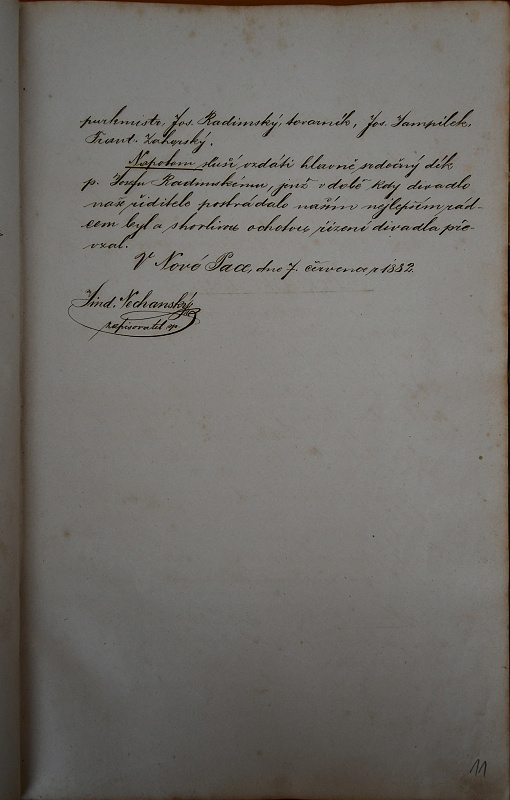 purkmistr, Jos. Radimský, továrník, Jos. Sampílek,
Frant. Záhorský.
Napotom sluší vzdáti hlavně srdečný dík
p. Josefu Radimskému, jenž v době kdy divadlo
naše řiditele postrádalo naším nejlepším rád-
cem byl a s horlivou ochotou řízení divadla pře-
vzal.
V Nové Pace, dne 7. července 1882.
Jind. Nechanský
zapisovatel
11